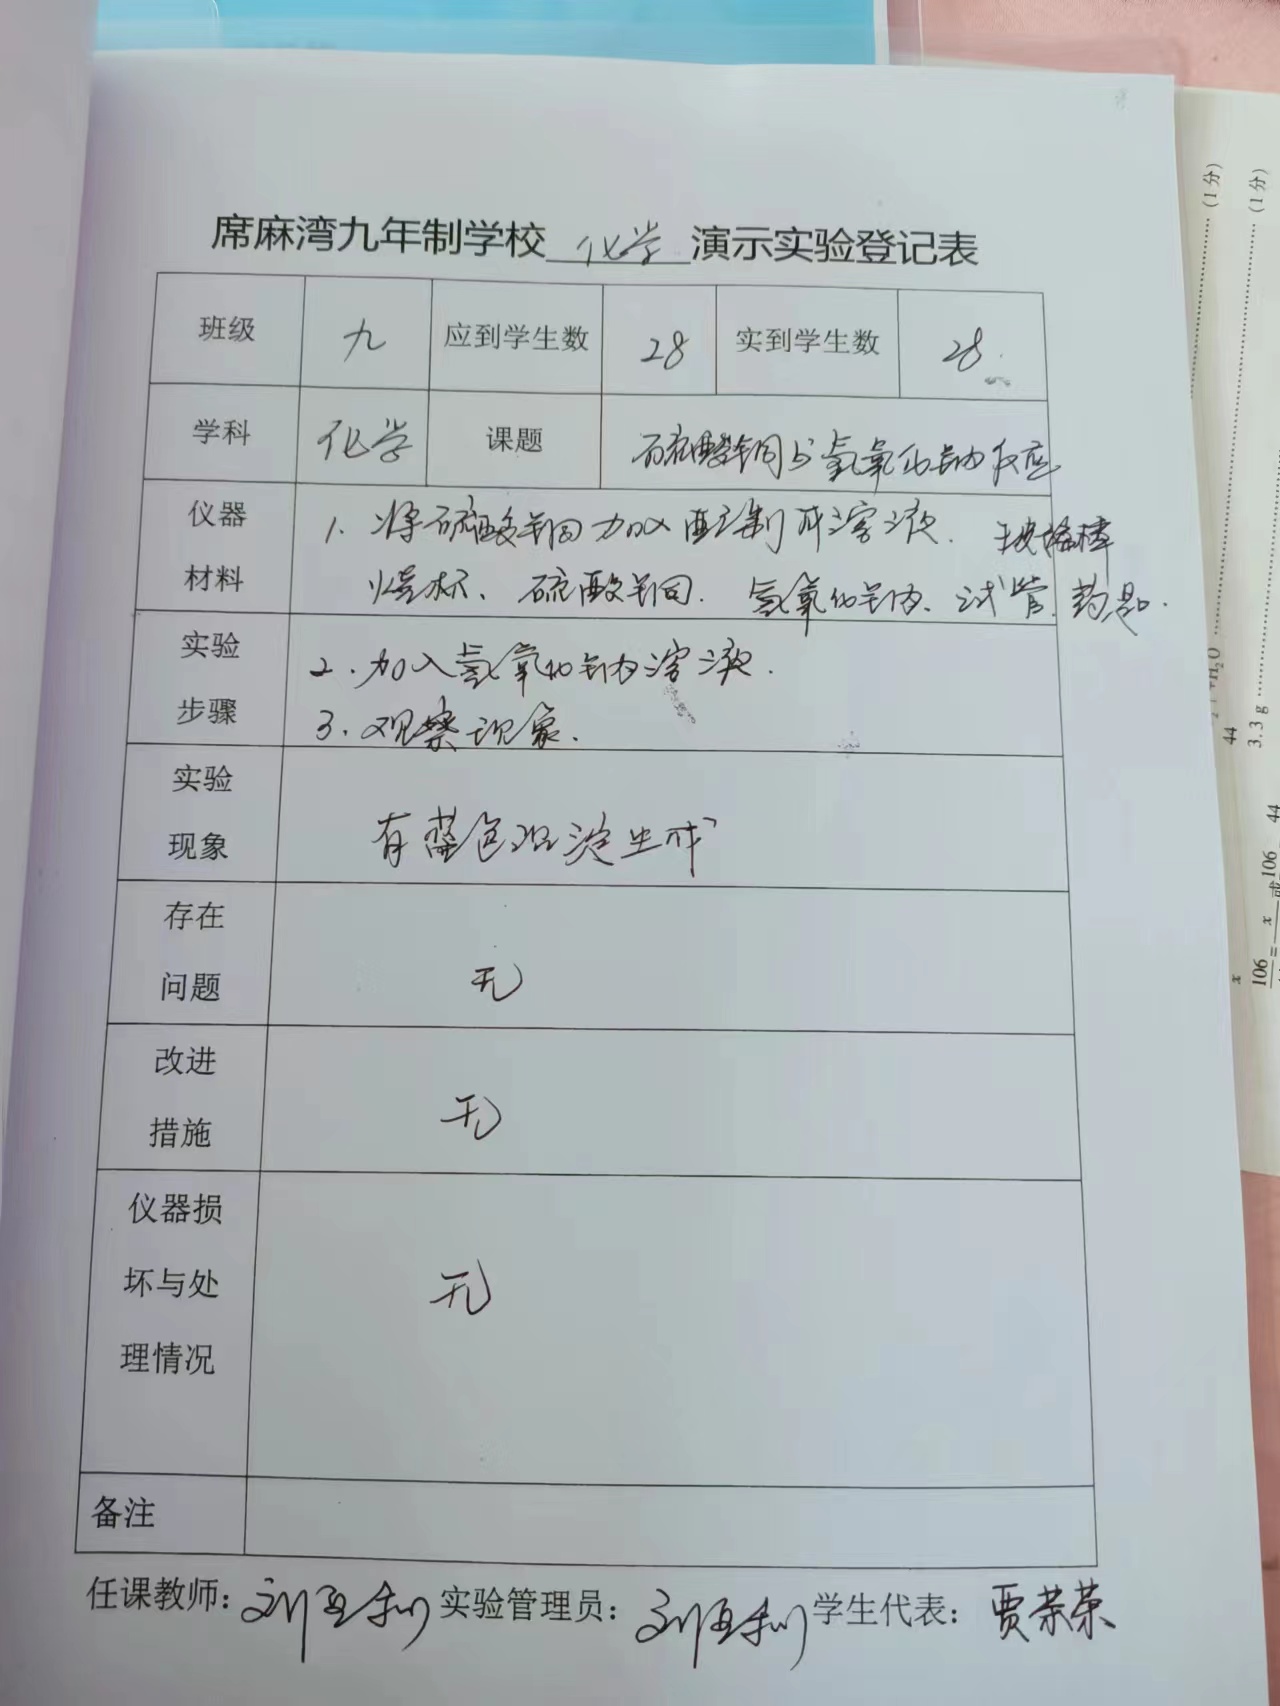 席麻湾九年制学校 化学 演示实验登记表
班级 九 应到学生数 28 实到学生数 28
学科 化学 课题 硫酸铜与氢氧化钠反应
仪器 1. 将硫酸铜加入配制成溶液. 玻璃棒
材料 烧杯、硫酸铜. 氢氧化钠、试管、药匙.
实验 2. 加入氢氧化钠溶液.
步骤 3. 观察现象.
实验
现象 有蓝色沉淀生成
存在
问题 无
改进
措施 无
仪器损
坏与处 无
理情况
备注
任课教师: 实验管理员: 学生代表: 贾荣荣
(1分)
(1分)
44
3.3 g
106
x
106
44